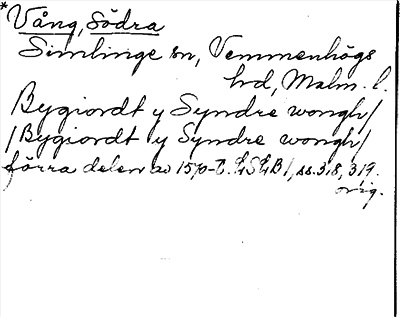 *Vång, Södra
Simlinge sn, Vemmenhögs
hd, Malm. l.
Bygiordt y Syndre wongh/
/Bygiordt y Syndre wongh/
förra delen av 1570-t. LSLB 1, ss. 318, 319.
orig.